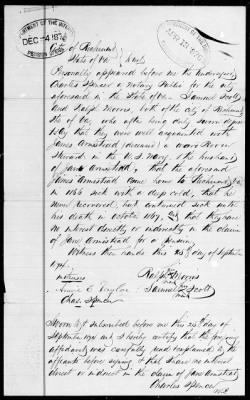 City of Richmond
State of Va. to wit
Personally appeared before me the undersigned
Charles Spencer a Notary Public for the city
aforesaid in the State of Va. Samuel Scott
and Ralph Morris, both of the city of Richmond
State of Va, who after being duly sworn depose
& say that they were well acquainted with
James Armistead (deceased) a
Steward, in the U.S. Navy, & the husband
of Jane Armistead, that the aforesaid
James Armistead came home to Richmond, Va
in 1866 sick with a deep cold, that he
never recovered, but continued sick until
his death in October 1867, that they have
no interest directly or indirectly in the claim
of Jane Armistead for a pension.
Witness their hands this 25th day of September
1874.
witnesses Ralph Morris
Annie E. Taylor Samuel Scott
Chas. Spencer
Sworn to & subscribed before me this 25th day of
September 1874 and I hereby certify that the foregoing
affidavit was carefully read & explained to the
affiants before signing & that I have no interest
direct or indirect in the claim of Jane Armistead
Charles Spencer
N.P.